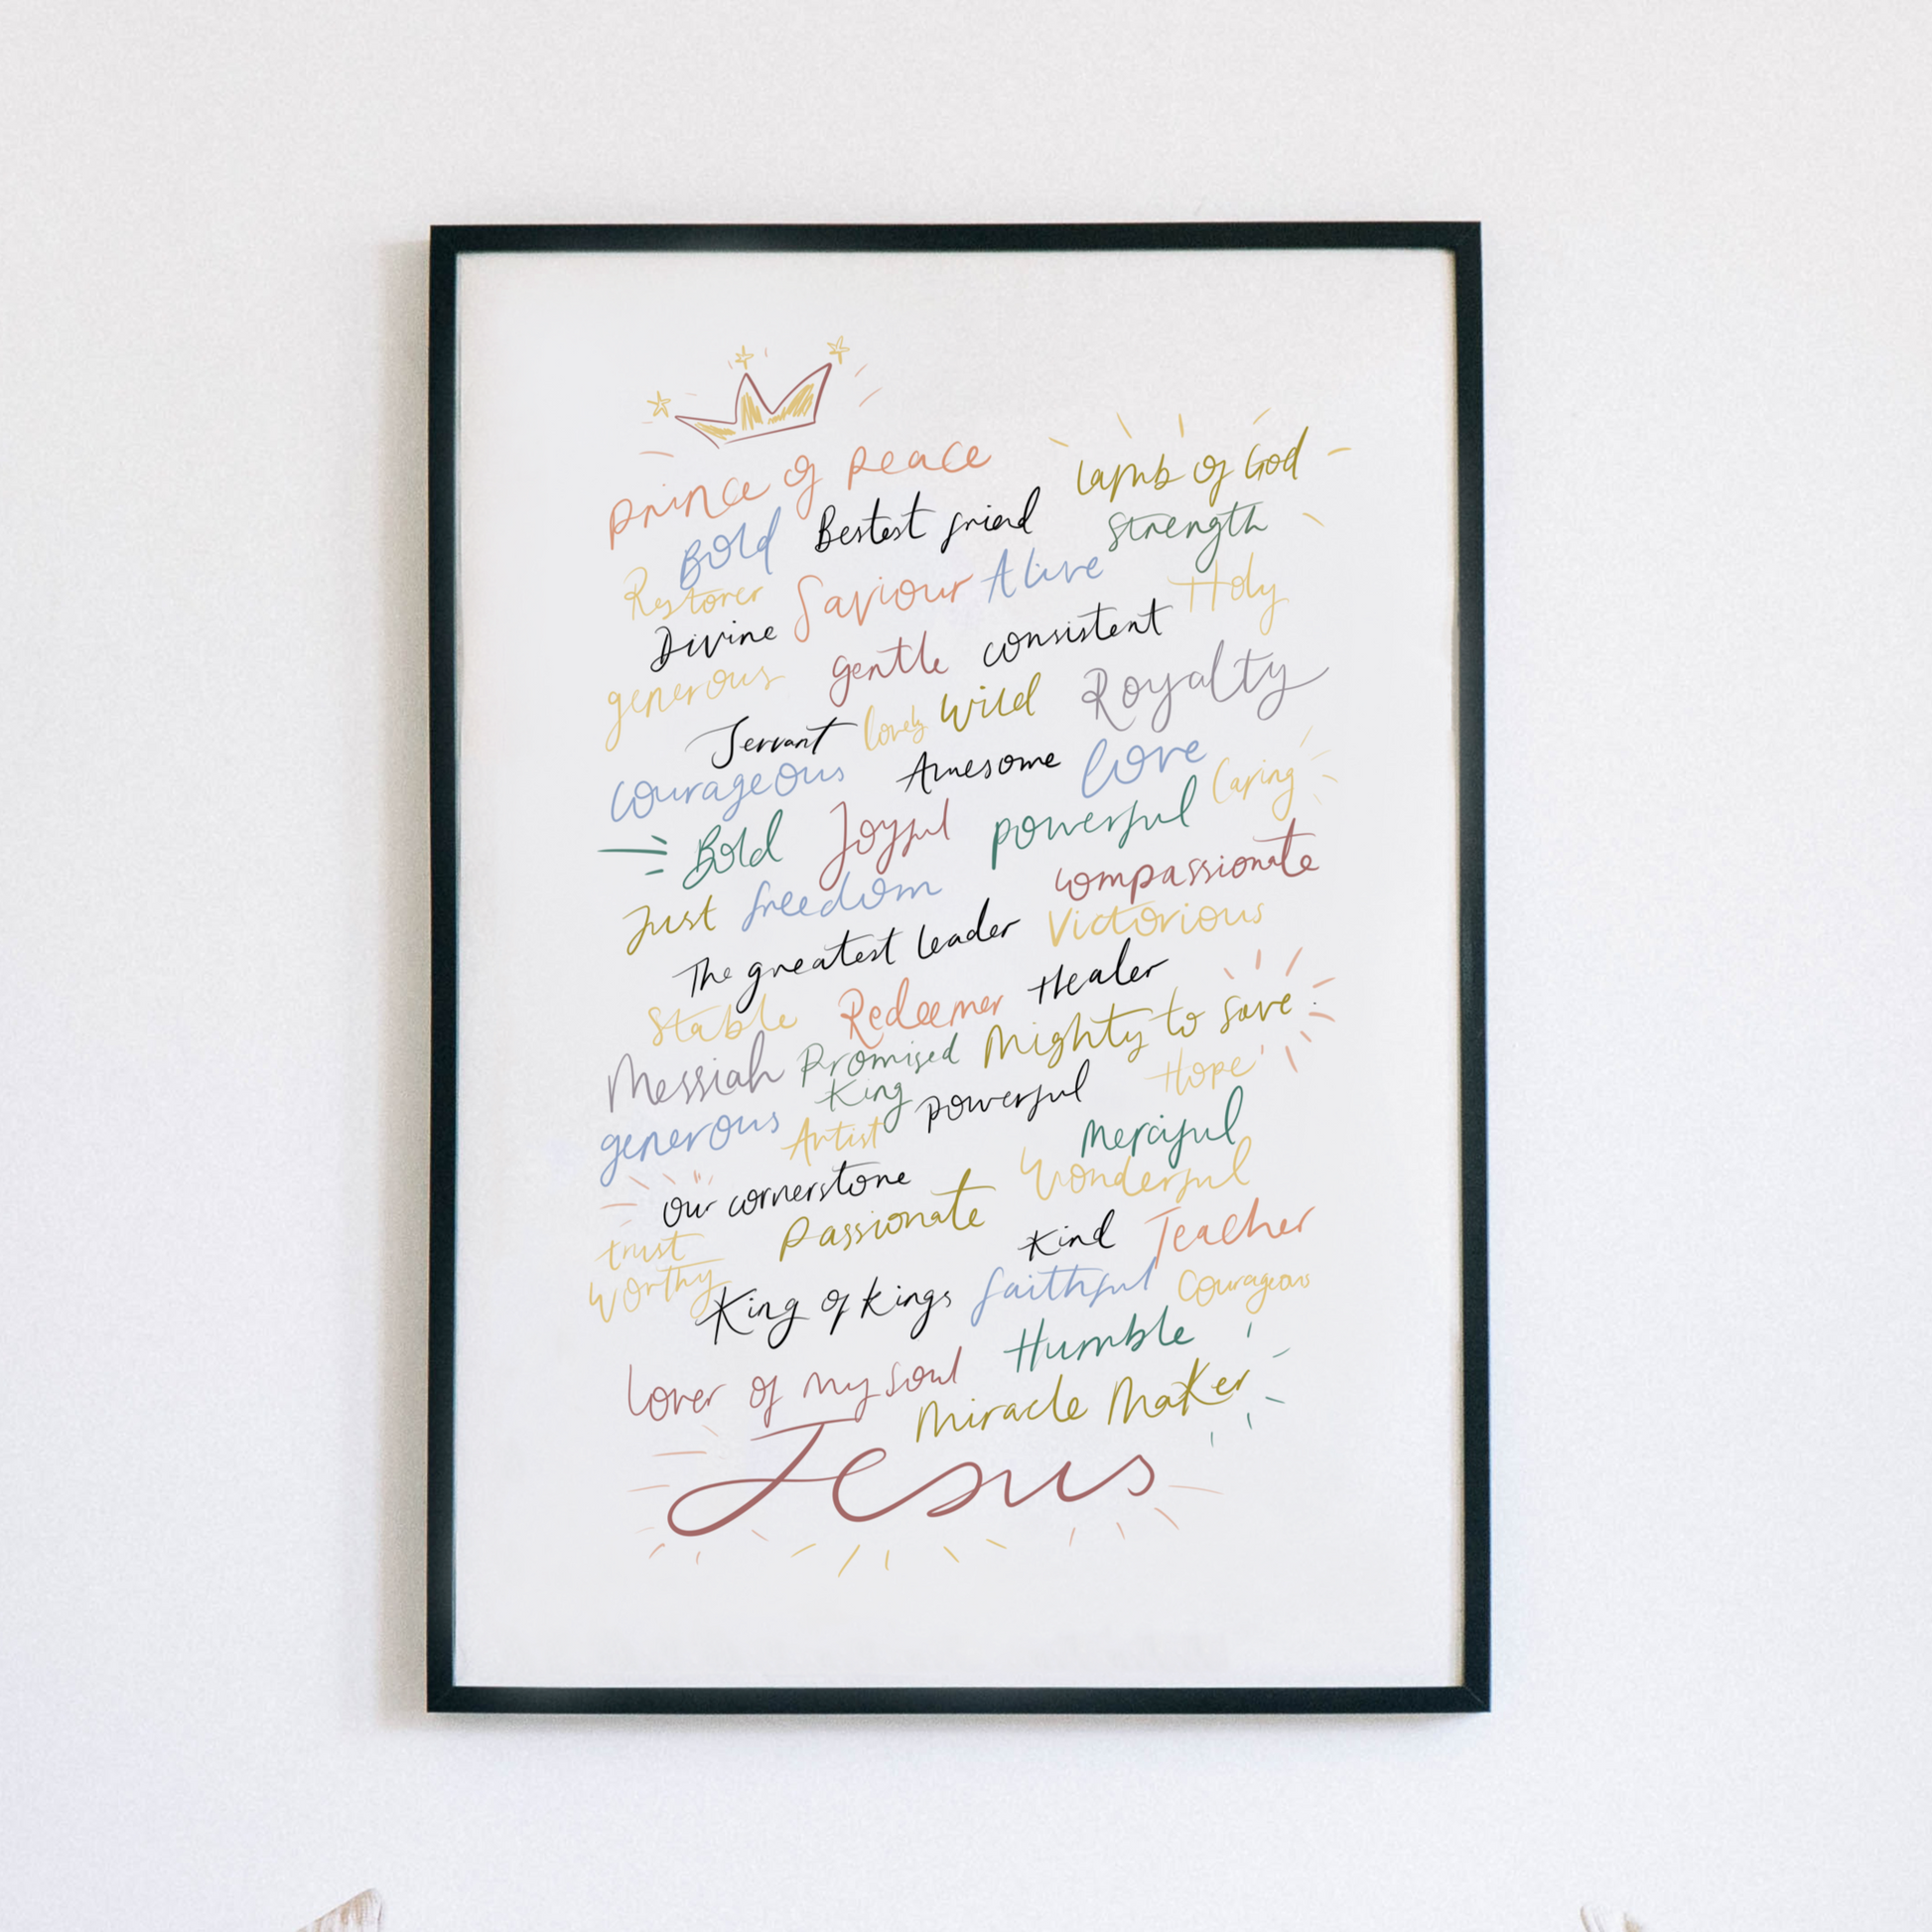 Prince of Peace Lamb of God
Bold Bestest friend Strength
Restorer Saviour Alive Holy
Divine gentle consistent
generous Wild Royalty
Servant lovely
Courageous Awesome love Caring
Bold Joyful powerful
Just freedom compassionate
The greatest leader Victorious
Stable Redeemer Healer
Messiah Promised Mighty to save
King powerful Hope
generous Artist Merciful
our cornerstone Wonderful
Passionate
trust Kind Teacher
worthy King of kings faithful Courageous
Lover of my soul Humble
Miracle Maker
Jesus